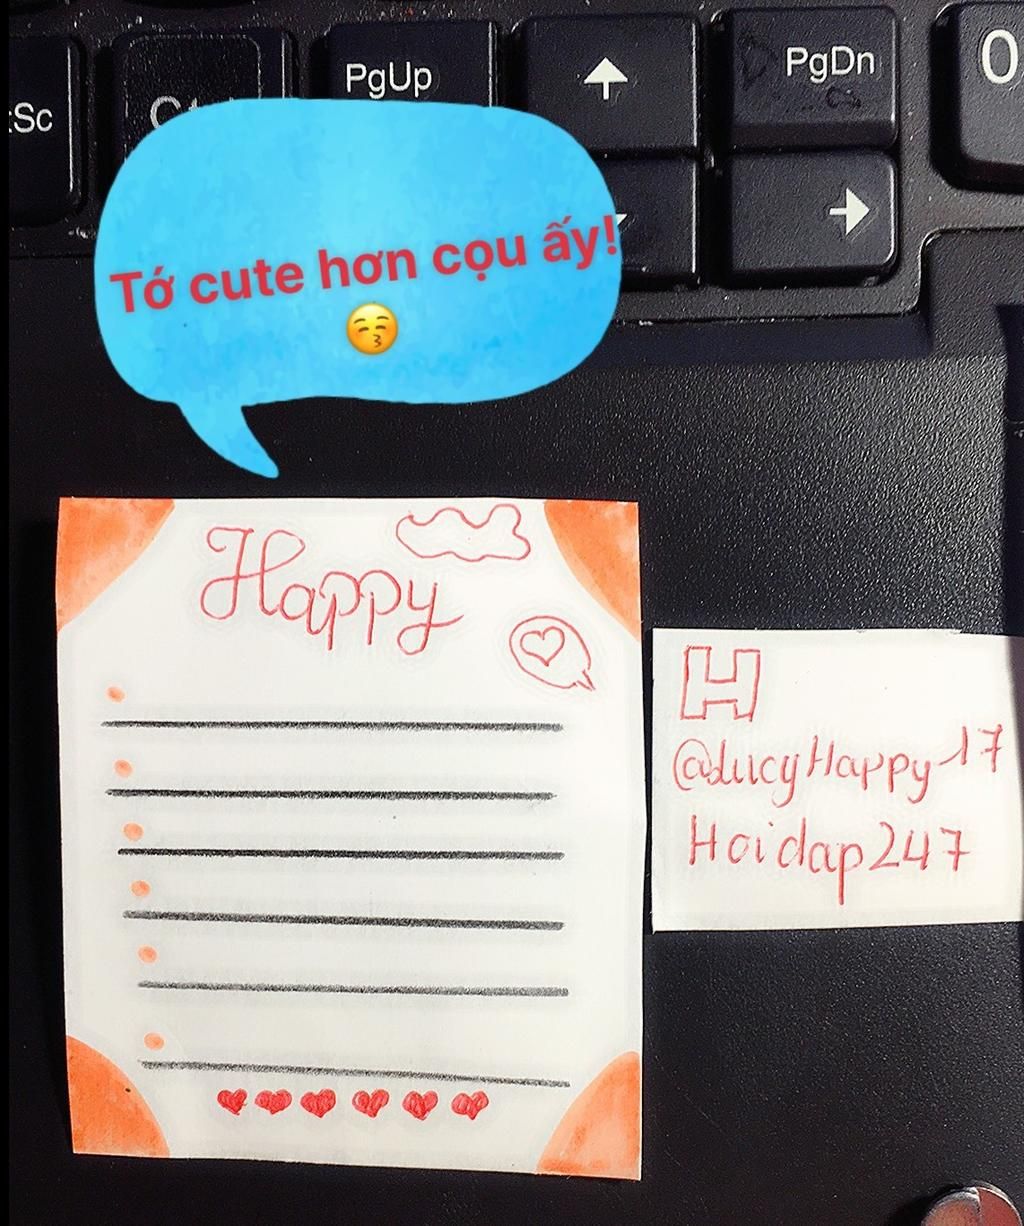 :Sc
PgUp
PgDn
0
Tớ cute hơn cọu ấy!
Happy
H
@LucyHappy17
Hoidap247